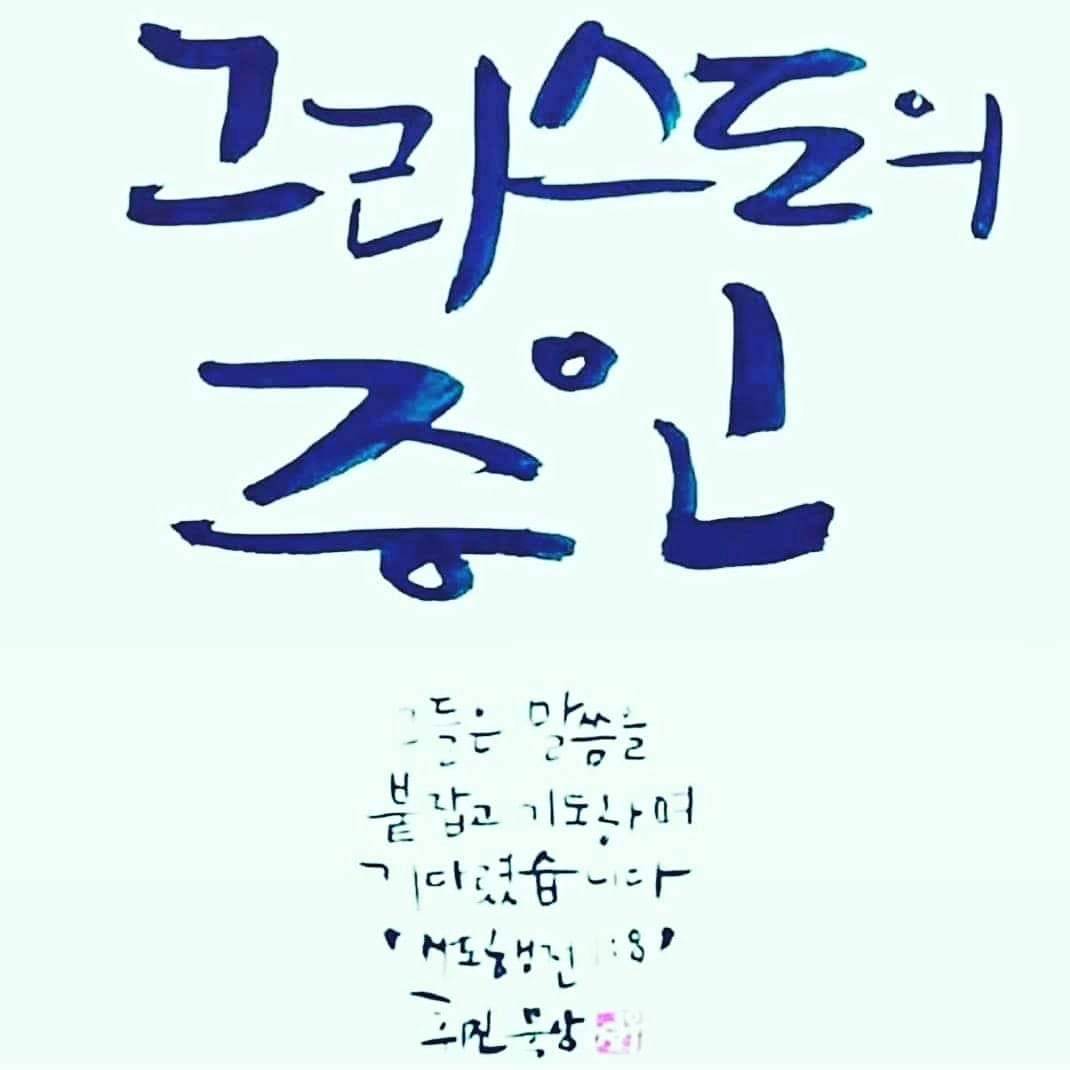 그리스도의
증인
그들은 말씀을
붙잡고 기도하며
기다렸습니다
'사도행전 1:8'
묵상